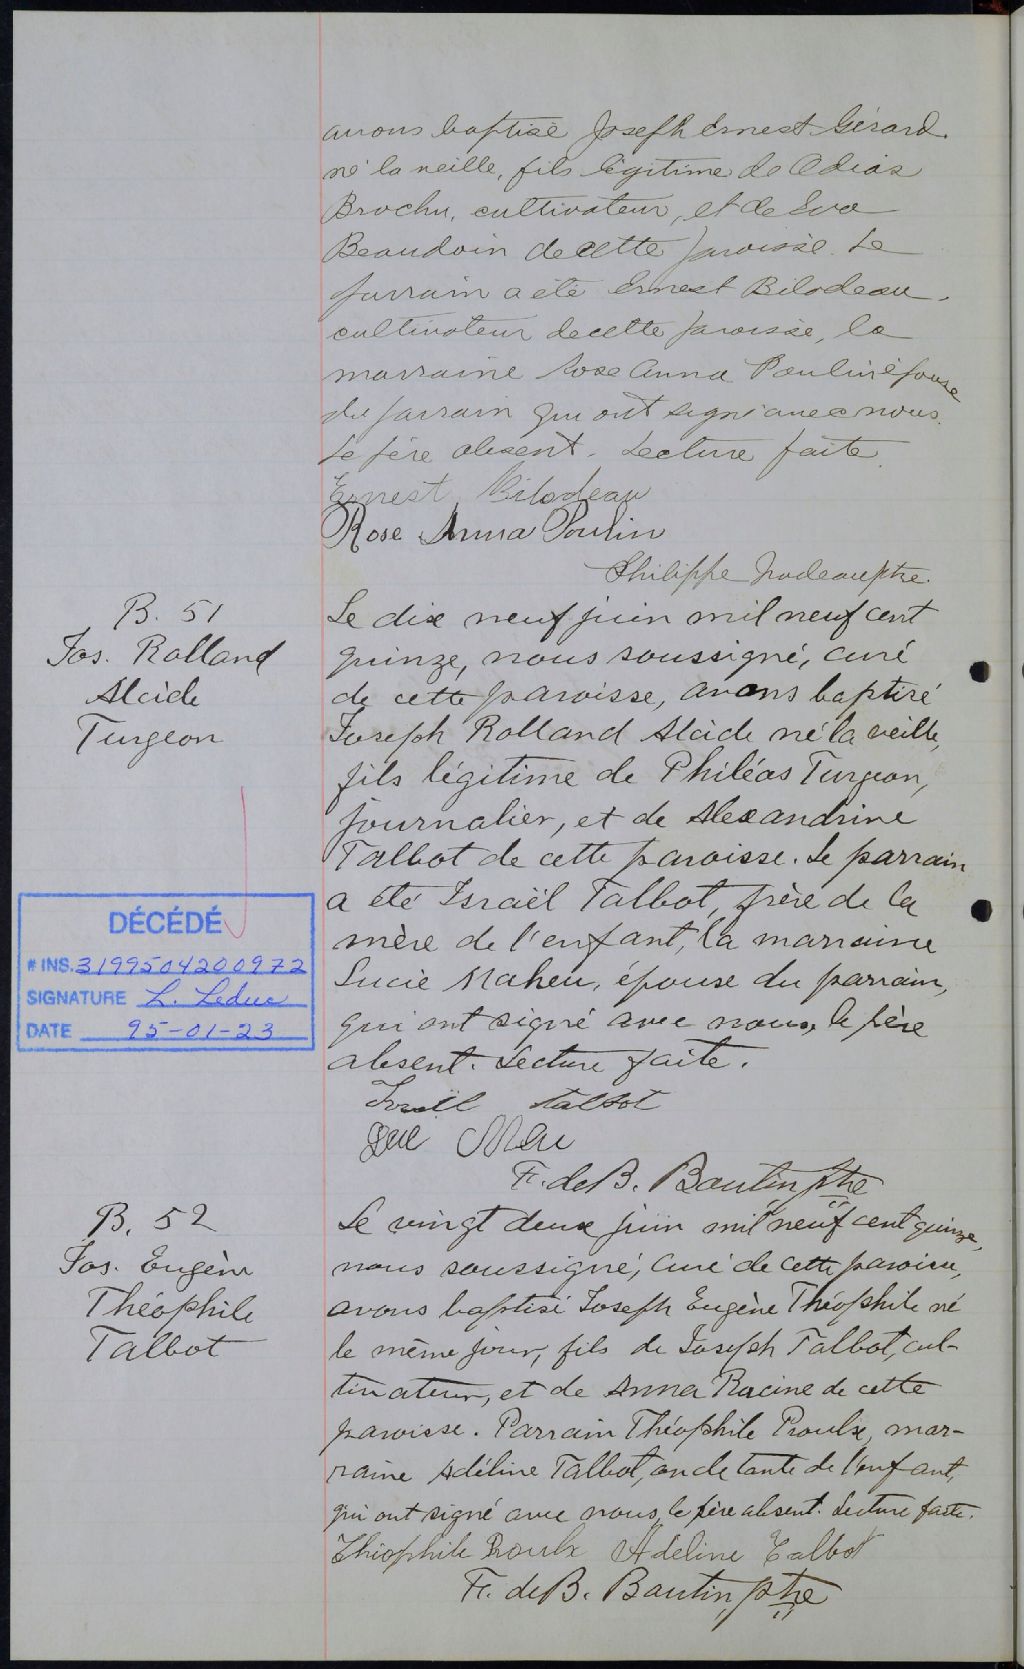 avons baptisé Joseph Ernest Gérard
né la veille, fils légitime de Odias
Brochu, cultivateur, et de Eva
Beaudoin de cette paroisse. Le
parrain a été Ernest Bilodeau,
cultivateur de cette paroisse, la
marraine Rose Anna Poulin épouse
du parrain qui ont signé avec nous.
Le père absent. Lecture faite
Ernest Bilodeau
Rose Anna Poulin
Philippe Nadeau ptre.
B. 51
Jos. Rolland
Alcide
Turgeon
Le dix neuf juin mil neuf cent
quinze, nous soussigné, curé
de cette paroisse, avons baptisé
Joseph Rolland Alcide né la veille,
fils légitime de Philéas Turgeon,
journalier, et de Alexandrine
Talbot de cette paroisse. Le parrain
a été Israël Talbot, frère de la
mère de l'enfant, la marraine
Lucie Maheu, épouse du parrain,
qui ont signé avec nous, le père
absent. Lecture faite.
DÉCÉDÉ
# INS. 3199504200972
SIGNATURE L. Leduc
DATE 95-01-23
Israël Talbot
F. de B. Boutin ptre
B. 52
Jos. Eugène
Théophile
Talbot
Le vingt deux juin mil neuf cent quinze,
nous soussigné, curé de cette paroisse,
avons baptisé Joseph Eugène Théophile né
le même jour, fils de Joseph Talbot, cul-
tivateur, et de Anna Racine de cette
paroisse. Parrain Théophile Proulx, mar-
raine Adéline Talbot, oncle tante de l'enfant,
qui ont signé avec nous, le père absent. Lecture faite.
Théophile Proulx Adeline Talbot
F. de B. Boutin, ptre